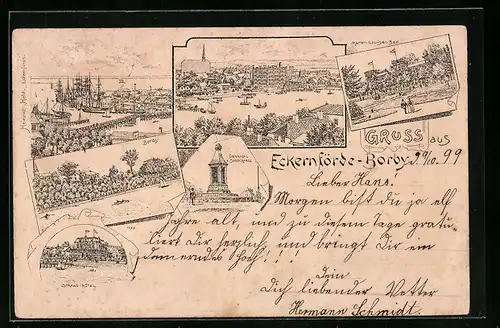 Marien-Louisen-Bad
GRUSS aus
Eckernförde-Borby, 9/10. 99
Borby
Lieber Hans.
Morgen bist du ja elf
Jahre alt, und zu diesem Tage gratu-
liert Dir herzlich und bringt Dir ein
donnerndes Hoch!!!
Dein
Dich liebender Vetter
Hermann Schmidt.
STRAND-HOTEL